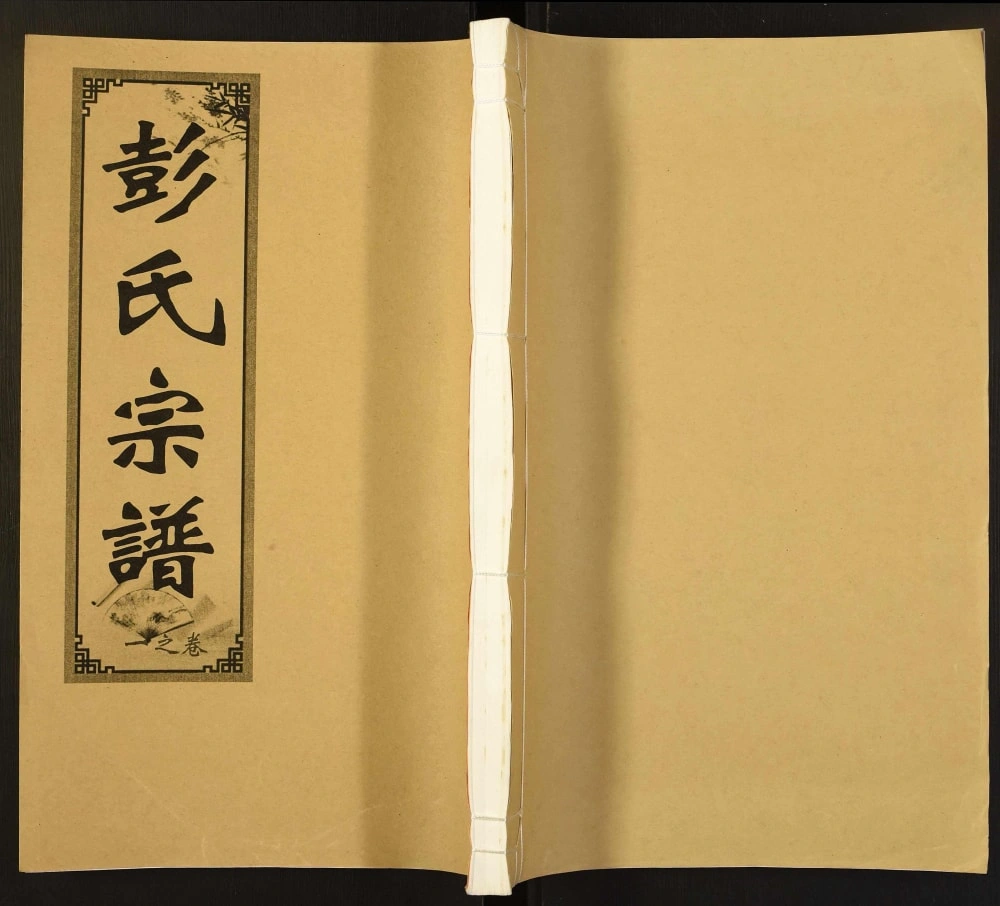 彭氏宗譜
卷之一